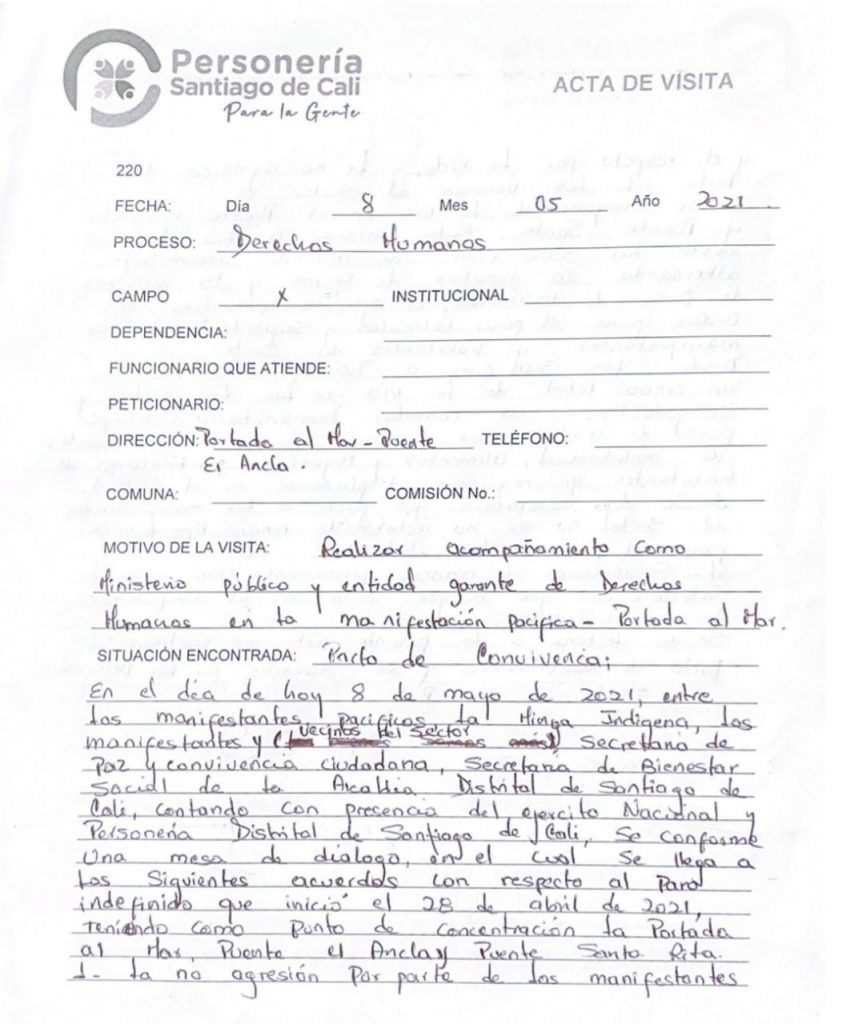 Personería
Santiago de Cali
Para la Gente
ACTA DE VISITA
220
FECHA: Día 8 Mes 05 Año 2021
PROCESO: Derechos Humanos
CAMPO x INSTITUCIONAL
DEPENDENCIA:
FUNCIONARIO QUE ATIENDE:
PETICIONARIO:
DIRECCIÓN: Portada al Mar - Puente TELÉFONO:
El Ancla.
COMUNA: COMISIÓN No.:
MOTIVO DE LA VISITA: Realizar acompañamiento Como
Ministerio público y entidad garante de Derechos
Humanos en la manifestación pacifica - Portada al Mar.
SITUACIÓN ENCONTRADA: Pacto de Convivencia:
En el día de hoy 8 de mayo de 2021, entre
los manifestantes pacificos la Minga Indigena, los
manifestantes y vecinos del sector Secretaria de
Paz y convivencia ciudadana, Secretaria de Bienestar
Social de la Alcaldia Distrital de Santiago de
Cali, contando con presencia del ejercito Nacional y
Personeria Distrital de Santiago de Cali, Se conforme
Una mesa de dialogo, en el cual Se llega a
los Siguientes acuerdos con respecto al Paro
indefinido que inició el 28 de abril de 2021,
teniendo como Punto de Concentración la Portada
al Mar, Puente el Ancla y Puente Santa Rita.
1- la no agresión Por parte de los manifestantes